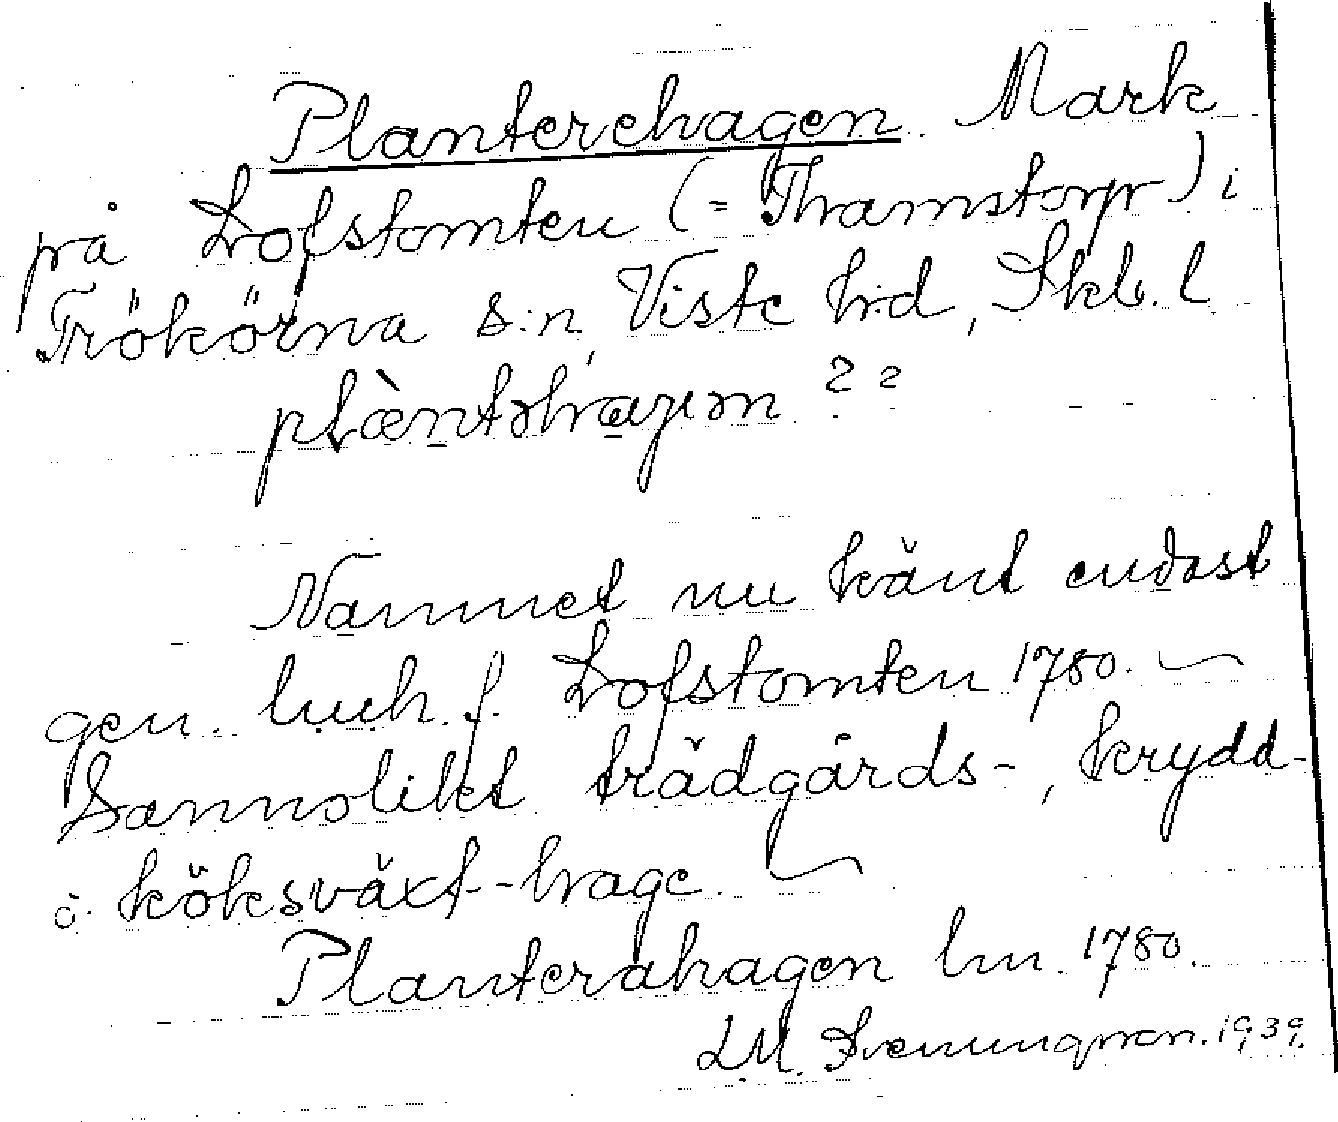 Planterehagen. Mark
på Lofstomten (= Thamstorp) i
Frökörna s:n, Viste h:d, Skb. l
plæ̀ntəhaɡɯən ? ?
Namnet nu känt endast
gen. luh. f. Lofstomten 1780.
Sannolikt trädgårds-, krydd-
o. köksväxt-hage.
Planterahagen lm. 1780.
L M. Svenungsson. 1939.